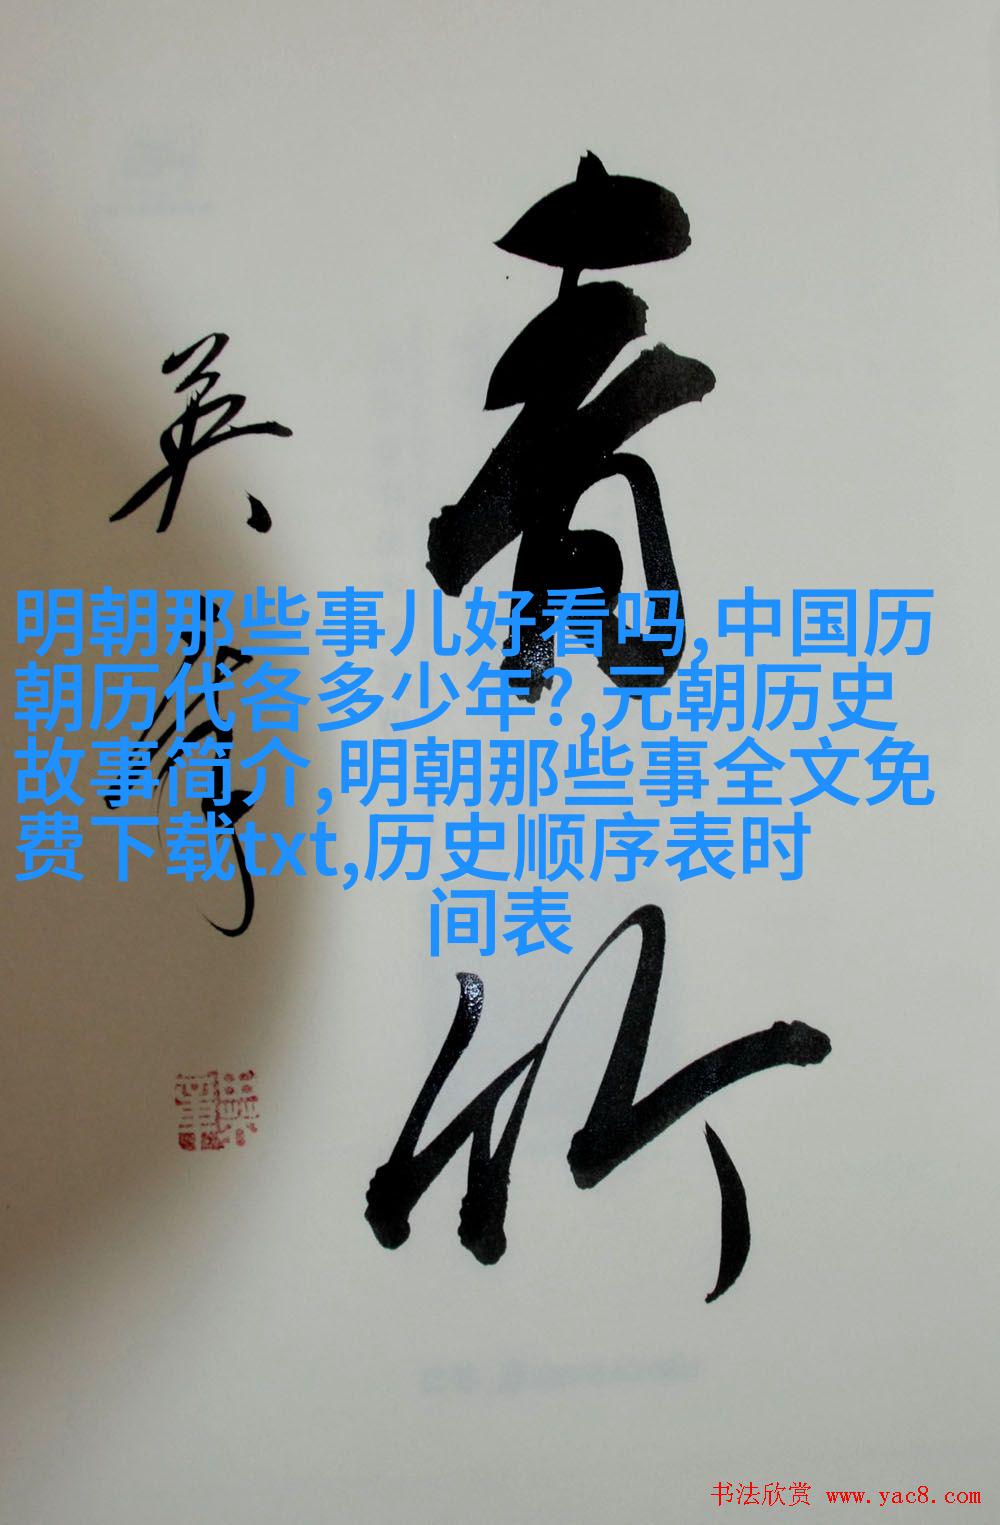 青竹
英
明朝那些事儿好看吗,中国历
朝历代各多少年?,元朝历史
故事简介,明朝那些事全文免
费下载txt,历史顺序表时
间表
书法欣赏 www.yac8.com